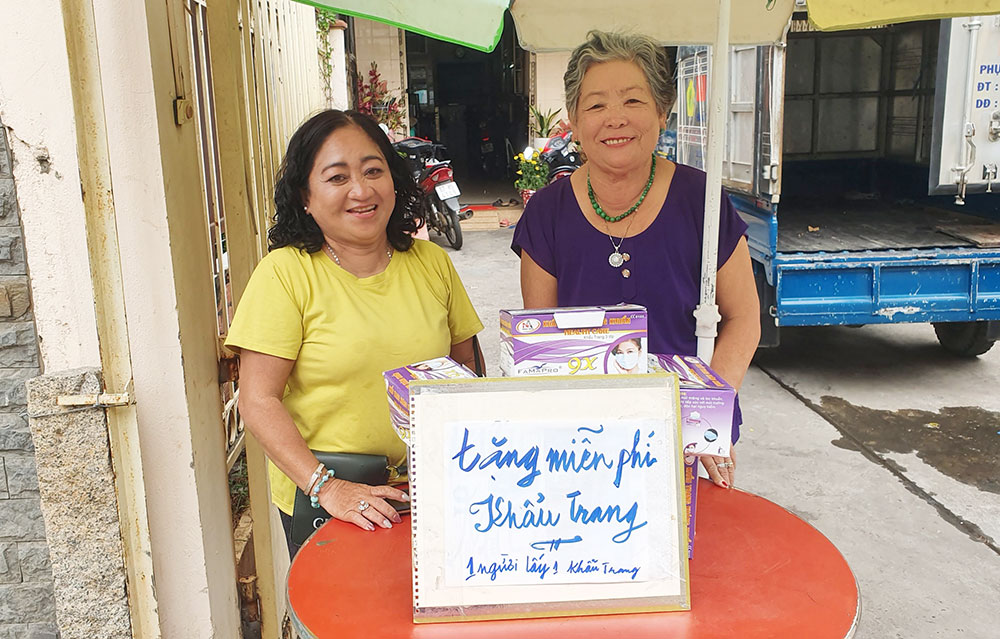 PHỤ
ĐT :
DĐ :
FAMAPRO
9X
Khẩu Trang
tặng miễn phí
Khẩu Trang
1 người lấy 1 Khẩu Trang